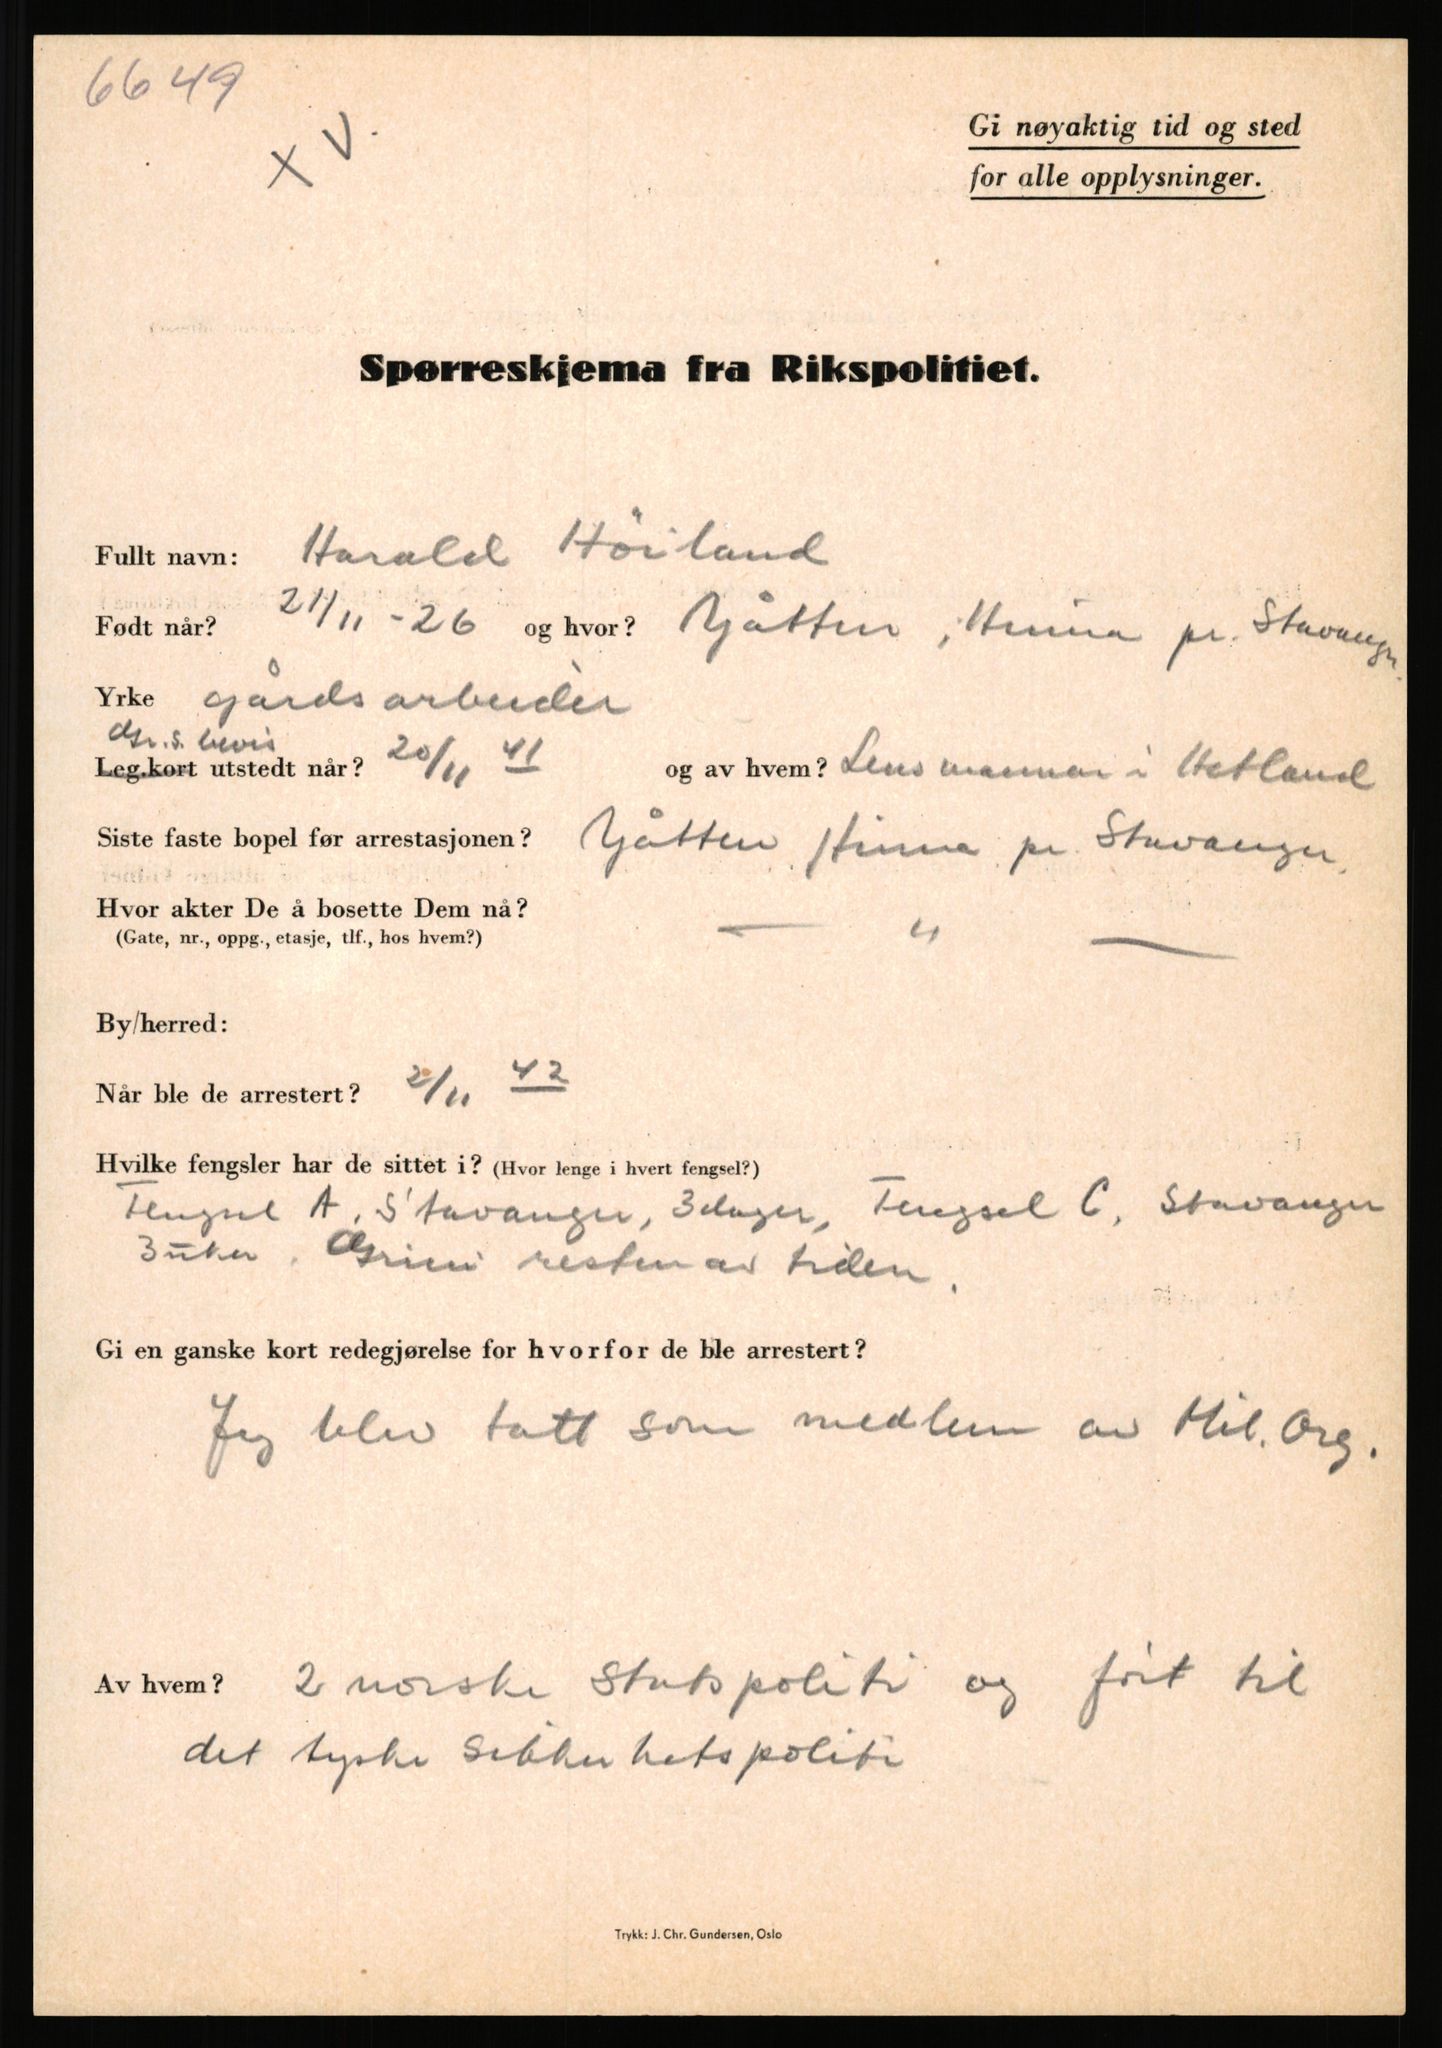 6649
X V.
Gi nøyaktig tid og sted
for alle opplysninger.
Spørreskjema fra Rikspolitiet.
Fullt navn: Harald Höiland
Født når? 21/11 - 26 og hvor? Gåtten, Hinna pr. Stavanger.
Yrke gårdsarbeider
Gr.s. bevis
Leg.kort utstedt når? 20/11 41 og av hvem? Lensmannen i Hetland
Siste faste bopel før arrestasjonen? Gåtten Hinna pr. Stavanger.
Hvor akter De å bosette Dem nå? — " —
(Gate, nr., oppg., etasje, tlf., hos hvem?)
By/herred:
Når ble de arrestert? 2/11 42
Hvilke fengsler har de sittet i? (Hvor lenge i hvert fengsel?)
Fengsel A, Stavanger, 3 dager, Fengsel C, Stavanger
3 uker. Grini resten av tiden.
Gi en ganske kort redegjørelse for hvorfor de ble arrestert?
Jeg blev tatt som medlem av Mil. Org.
Av hvem? 2 norske Statspoliti og fört til
det tyske sikkerhetspoliti
Trykk: J. Chr. Gundersen, Oslo